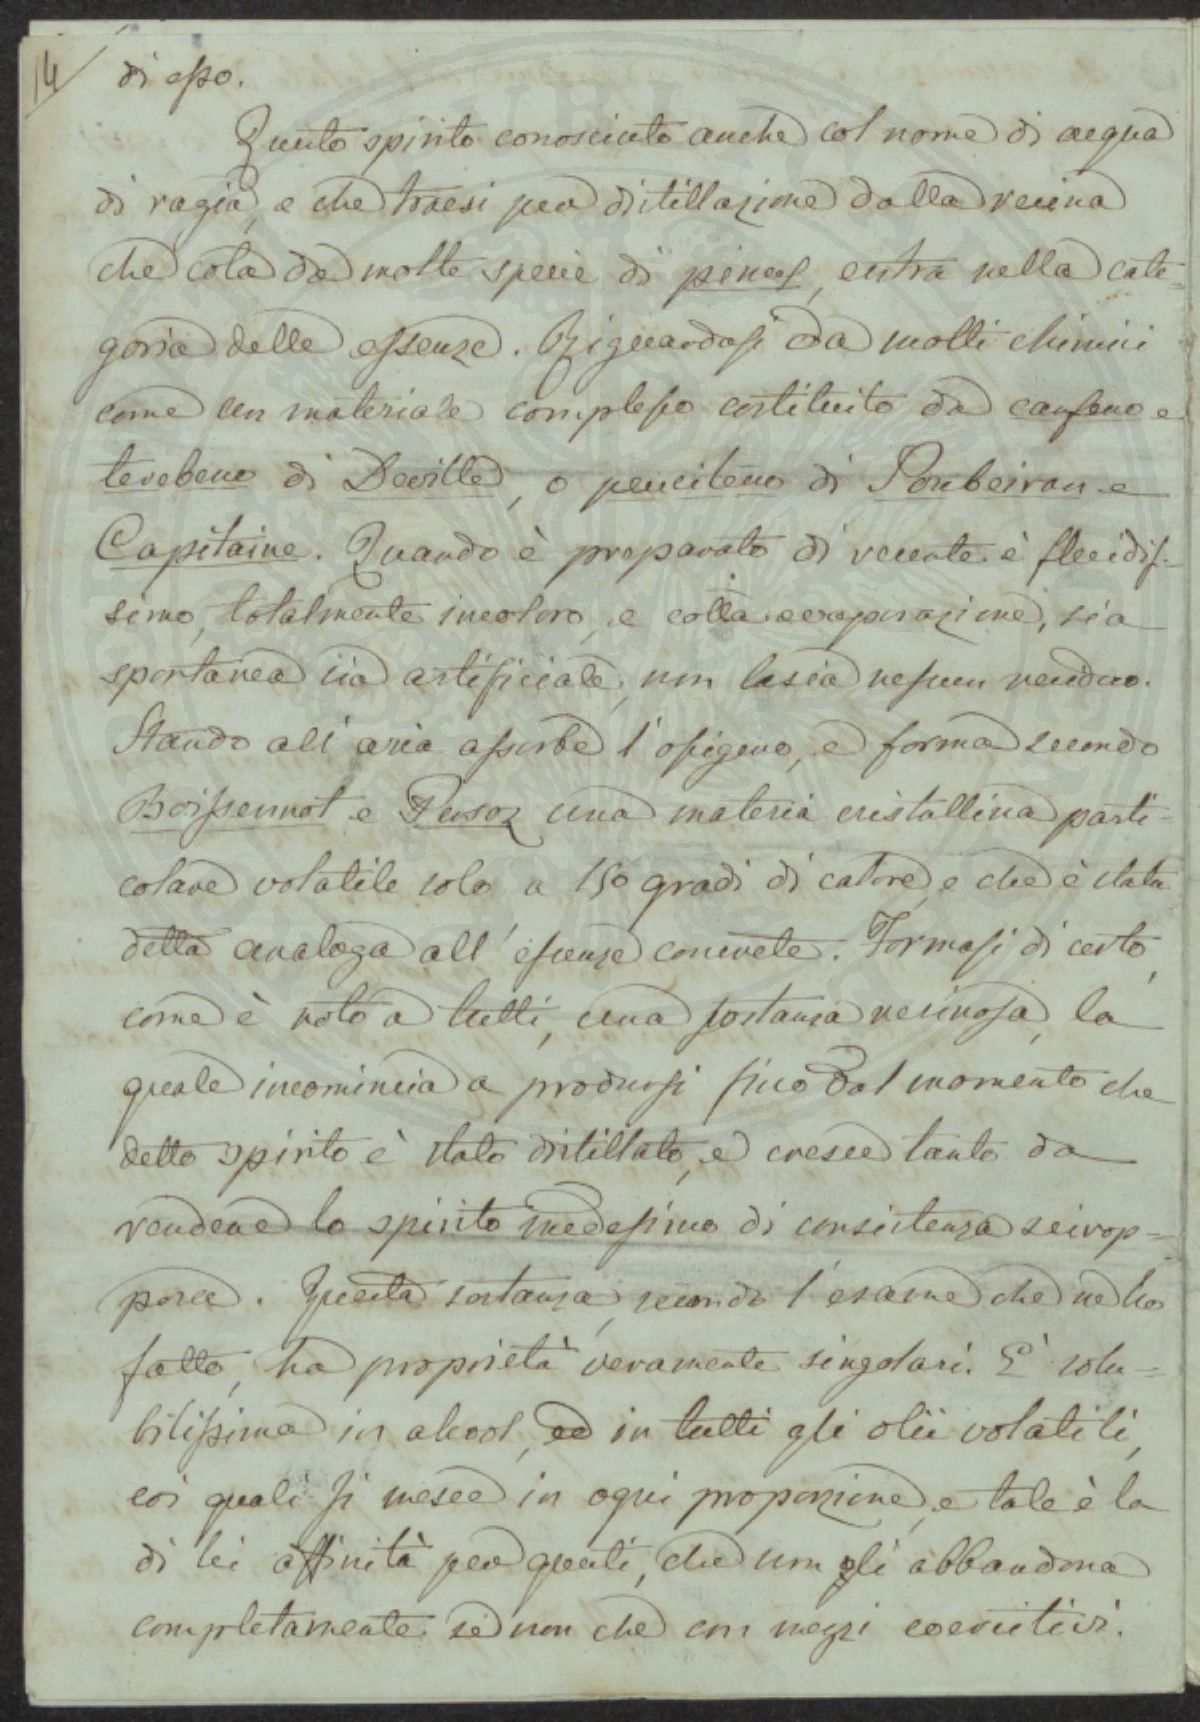 14
di esso.
Questo spirito conosciuto anche col nome di acqua
di ragia, e che traesi per distillazione dalla resina
che cola da molte specie di pinus, entra nella cate=
goria delle essenze. Riguardasi da molti chimici
come un materiale complesso costituito da canfeno e
terebeno di Deville, o peuciteno di Soubeiran e
Capitaine. Quando è preparato di recente è fluidis=
simo, totalmente incoloro, e colla evaporazione, sia
spontanea sia artificiale, non lascia nessun residuo.
Stando all'aria assorbe l'ossigeno, e forma secondo
Boissennot e Persoz una materia cristallina parti=
colare volatile solo a 150 gradi di calore, e che è stata
detta analoga all'essenze concrete. Formasi di certo,
come è noto a tutti, una sostanza resinosa, la
quale incomincia a prodursi fino dal momento che
detto spirito è stato distillato, e cresce tanto da
rendere lo spirito medesimo di consistenza scirop=
posa. Questa sostanza, secondo l'esame che ne ho
fatto, ha proprietà veramente singolari. E' solu=
bilissima in alcool, ed in tutti gli olii volatili,
coi quali si mesce in ogni proporzione, e tale è la
di lei affinità per questi, che non gli abbandona
completamente se non che con mezzi coercitivi.